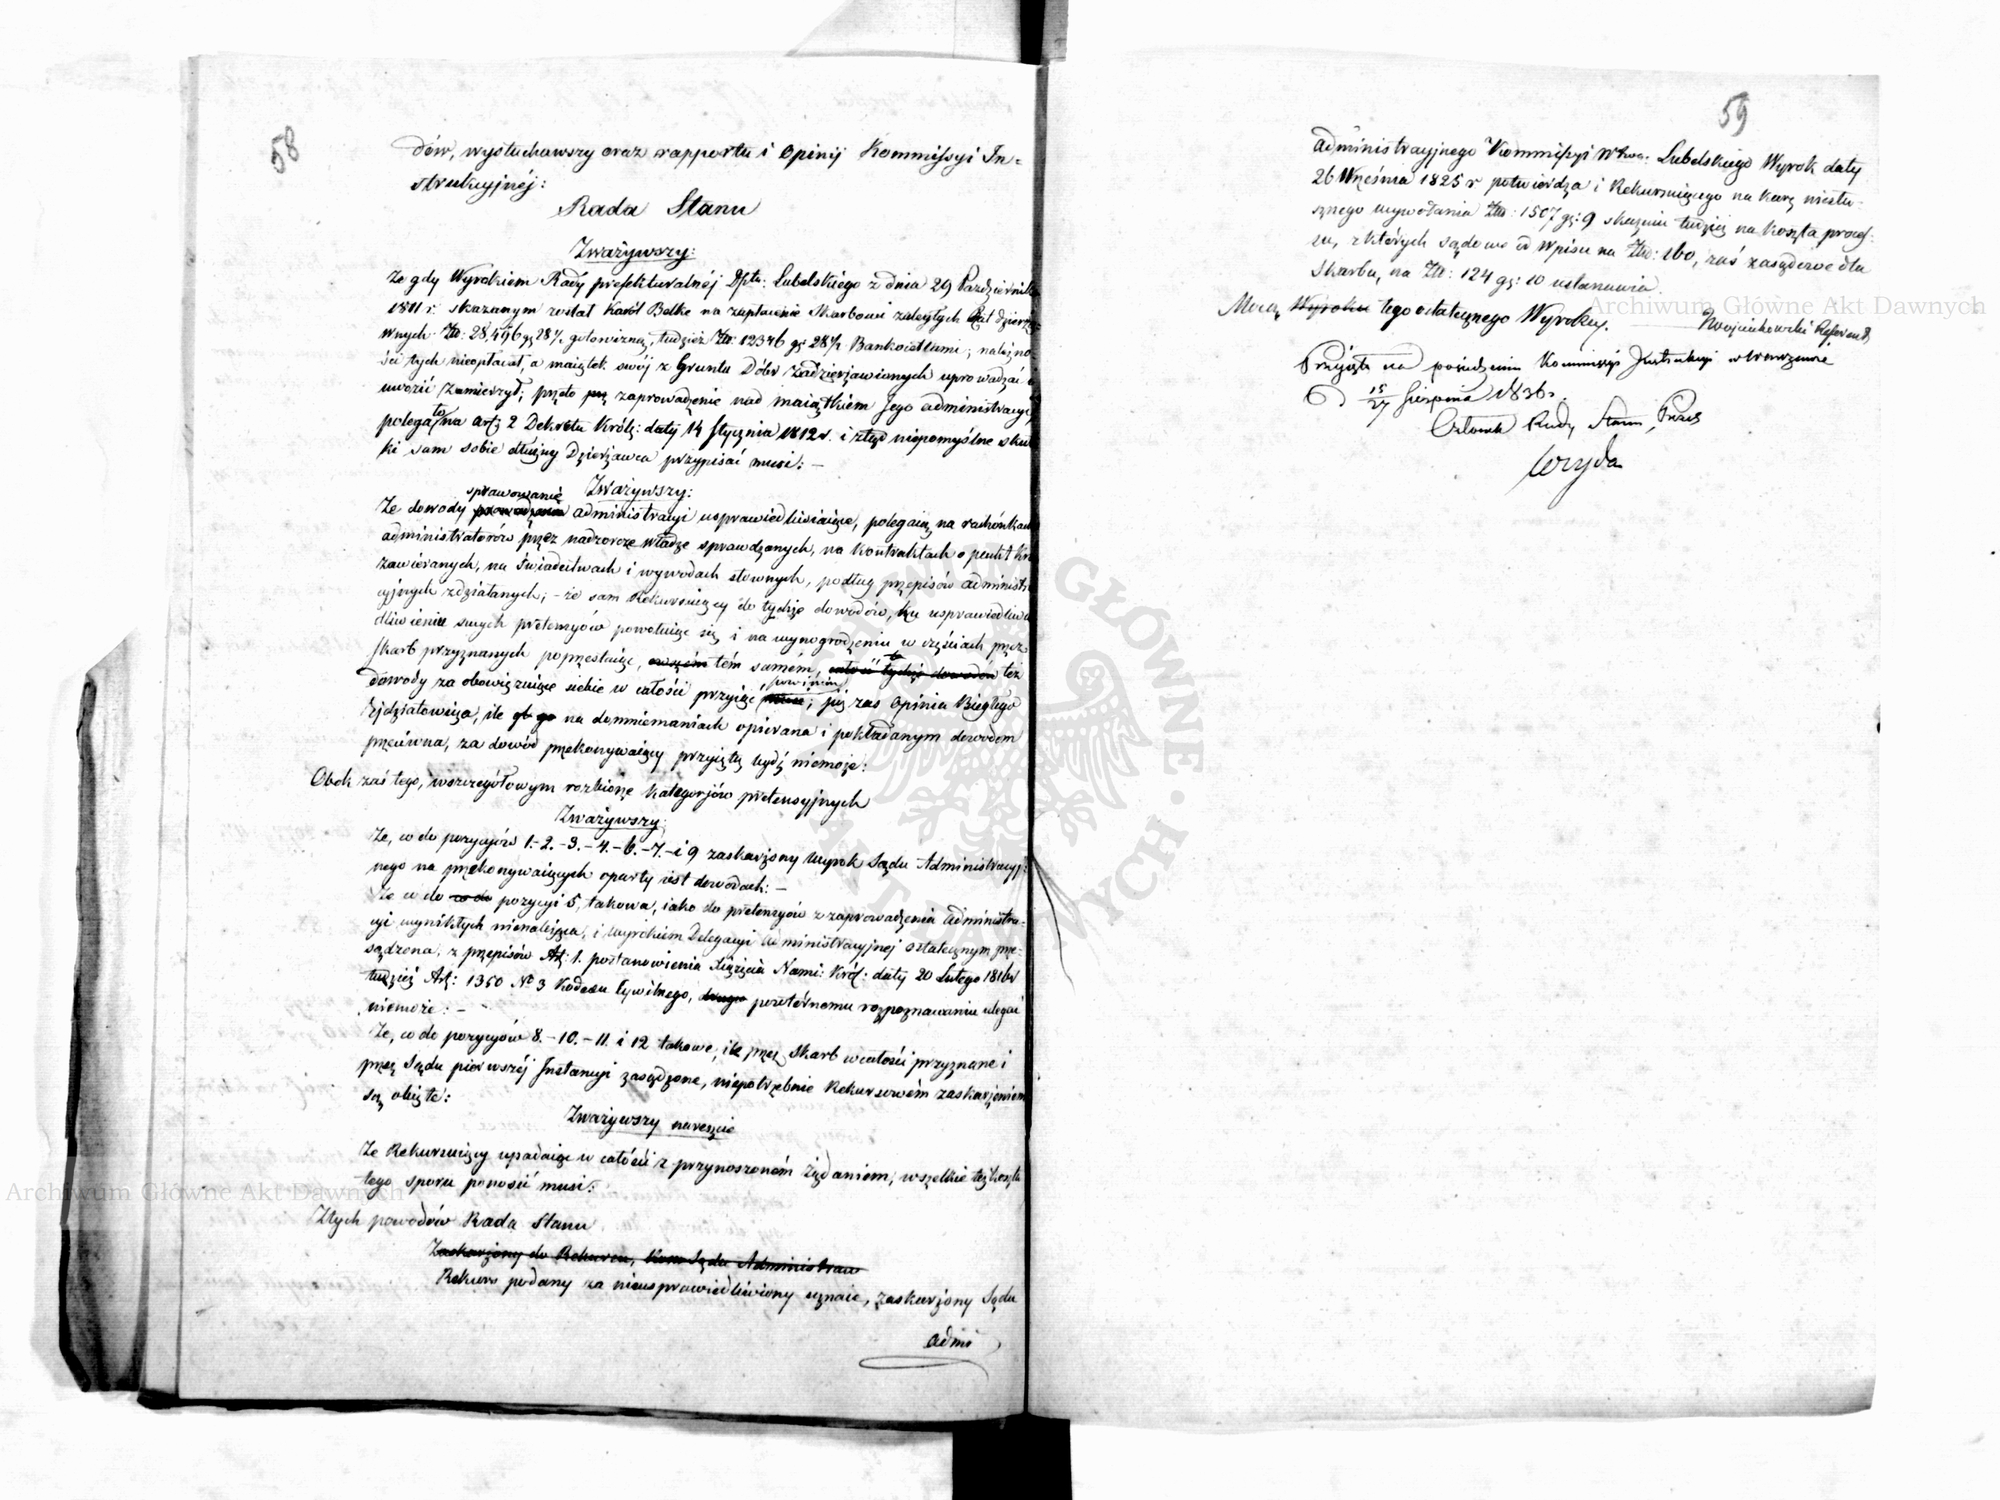 58
dów, wysłuchawszy oraz rapportu i Opinij Kommissyi In-
strukcyjnéj:
Rada Stanu
Zważywszy:
że gdy Wyrokiem Rady prefekturalnéj Dptu: Lubelskiego z dnia 29 Październik
1811 r. skazanym został Karól Belke na zapłacenie Skarbowi zaległych Rat dzierża
wnych Złt: 28,496 gr 28½ gotowizną, tudzież Złt: 12346 gr 28½ Bankocetlami; należno-
ści tych nieopłacał, a maiątek swój z Gruntu Dóbr zadzierżawionych uprowadzać i
uwozić zamierzył; przeto zaprowadzenie nad maiątkiem Jego administracyi,
polega to na art: 2 Dekretu Króls: daty 14 Stycznia 1812 r. i ztąd niepomyślne skut
ki sam sobie dłużny Dzierżawca przypisać musi: —
Zważywszy:
sprawowanie
Że dowody prowadzenia administracyi usprawiedliwiaiące, polegaią na rachónkach
administratorów przez nadzorcze władze sprawdzonych, na Kontraktach o
zawiéranych, na świadectwach i wywodach słownych, podług przepisów administra
cyjnych zdziałanych; – że sam Rekursuiący do tychże dowodów, ku usprawiedliwie
dliwieniu swych pretensyów powołuiąc się i na wynogrodzeniu w częściach przez
Skarb przyznanych poprzestaiąc, owszem tém samém, całość tychże dowodów też
dowody za obowięzuiące siebie w całości przyiąć powinien musi; już zas Opinia Biegłego
Zdziałowicza, ile na domniemaniach opierana i pokładanym dowodom
przeciwna, za dowód przekonywaiący przyiętą bydź niemoże:
Obok zaś tego, w szczegółowym rozbiorze Kategorjów pretensyjnych
Zważywszy:
Że, co do pozycyów 1.–2.–3.–4.–6.–7.–i 9 zaskarżony wyrok Sądu Administracyj:
nego na przekonywaiących oparty iest dowodach: —
Że co do co do pozycyi 5, takowa, iako do pretensyów z zaprowadzenia administra-
cyi wynikłych nienależąca, i wyrokiem Delegacyi administracyjnej ostatecznym prze-
sądzona, z przepisów Art: 1. postanowienia Xiążęcia Nami: Król: daty 20 Lutego 1816 r
tudzież Art: 1350 No 3 Kodexu Cywilnego, drugie powtórnemu rozpoznawaniu ulegać
niemoże: —
Że, co do pozycyów 8.–10.–11. i 12 takowe, ile przez Skarb w całości przyznane i
przez Sądu pierwszéj Instancyi zasądzone, niepotrzebnie Rekursowém zaskarżeniem
są obięte:
Zważywszy nareszcie
Że Rekursuiący upadaiąc w całości z przynoszoném żądaniem, wszelkie też koszta
tego sporu ponosić musi:
Z tych powodów Rada Stanu
Zaskarżony do Rekursu, Kom Sądu Administrac
Rekurs podany za nieusprawiedliwiony uznaie, zaskarżony Sądu
admi
59
administracyjnego Kommissyi Wtwa: Lubelskiego Wyrok daty
26 Września 1825 r potwierdza i Rekursuiącego na karę niesłu-
sznego wywołania Złt: 1507 gr: 9 skazuie tudzież na koszta proces-
su, z których sądowe od Wpisu na Złt: 160, zaś zasądzone dla
Skarbu, na Złt: 124 gr: 10 ustanawia.
Mocą Wyroku tego ostatecznego Wyroku.
Woyciechowski Referend.
Przyięta na posiedzeniu Kommissyi Instrukcyi w Warszawie
D 15/27 Sierpnia 1836 r.
Członek Rady Stanu, Prezes
Archiwum Główne Akt Dawnych
Archiwum Główne Akt Dawnych